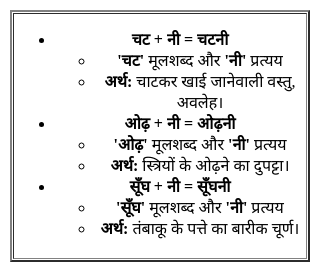 चट + नी = चटनी
'चट' मूलशब्द और 'नी' प्रत्यय
अर्थ: चाटकर खाई जानेवाली वस्तु,
अवलेह।
ओढ़ + नी = ओढ़नी
'ओढ़' मूलशब्द और 'नी' प्रत्यय
अर्थ: स्त्रियों के ओढ़ने का दुपट्टा।
सूँघ + नी = सूँघनी
'सूँघ' मूलशब्द और 'नी' प्रत्यय
अर्थ: तंबाकू के पत्ते का बारीक चूर्ण।